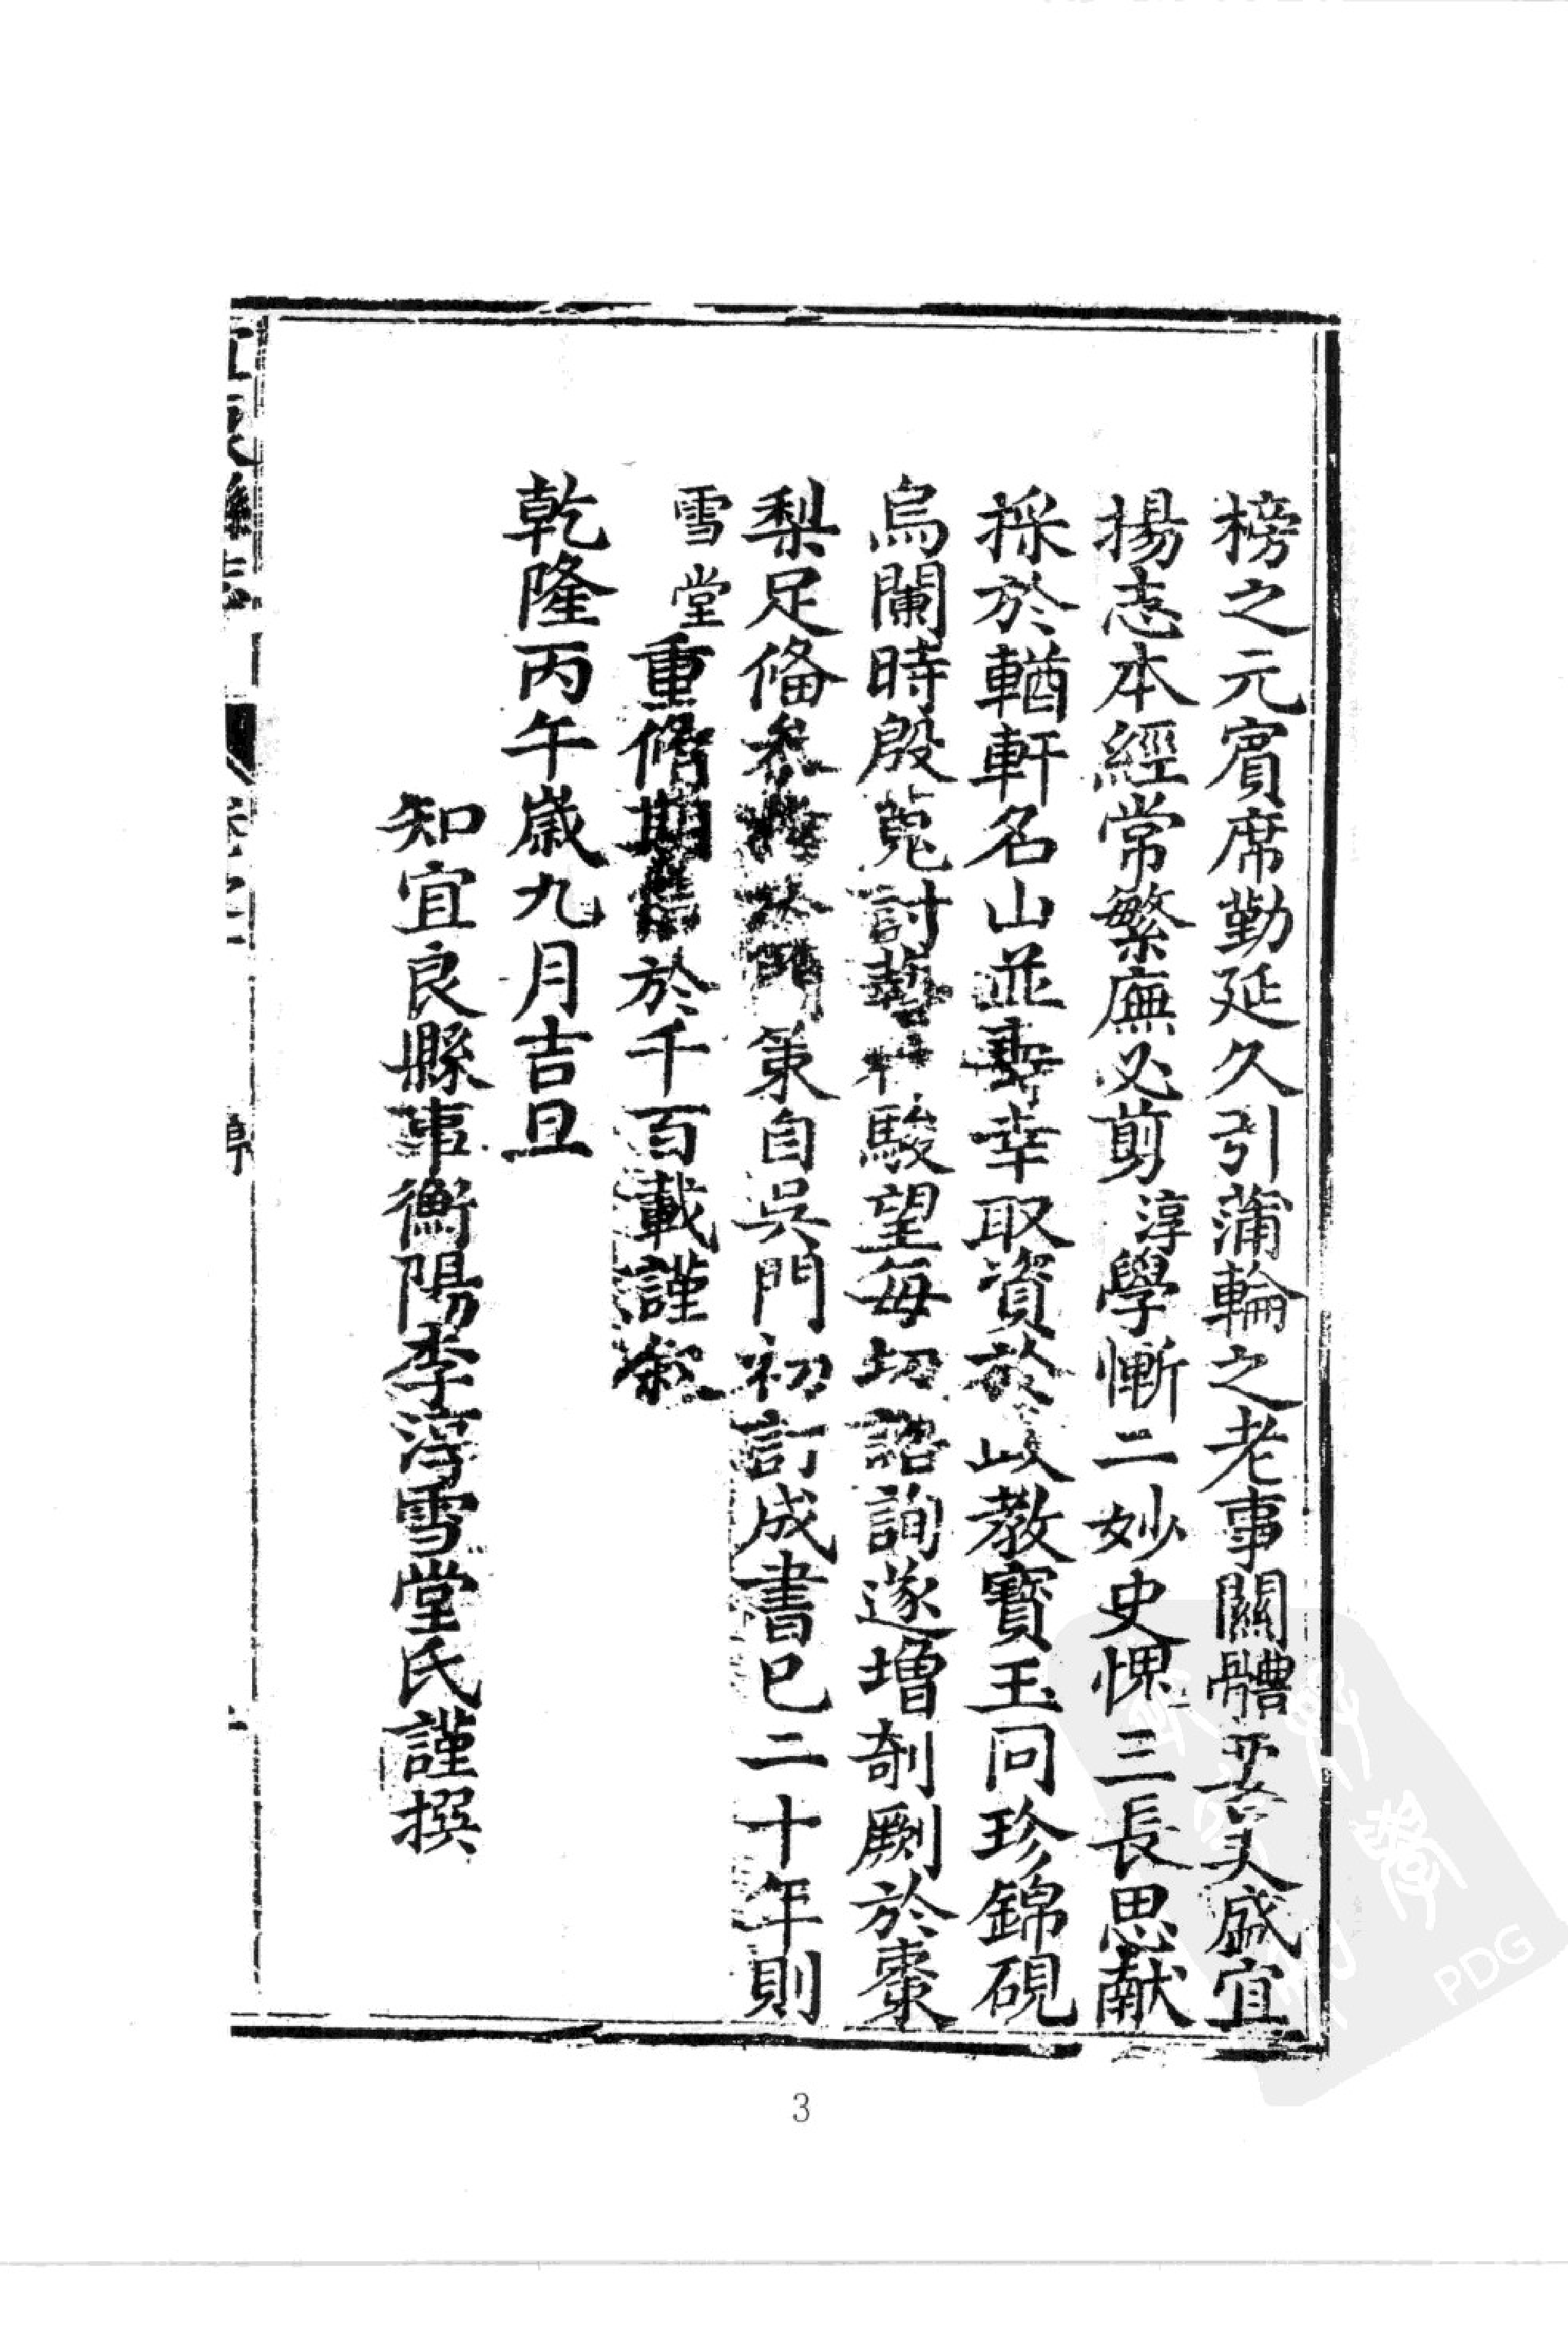 榜之元賓席勤延久引蒲輪之老事關體要美盛宜
揚志本經常繁廡必剪淳學慚二妙史愧三長思献
採於輶軒名山並壽幸取資於政教寶玉同珍錦硯
烏闌時殷蒐討藝林駿望每切諮詢遂增剞劂於棗
梨足俻參策自吳門初訂成書已二十年則
雪堂重脩期於千百載謹敘
乾隆丙午歲九月吉旦
知宜良縣事衡陽李淳雪堂氏謹撰
宜良縣志
序
3
PDG